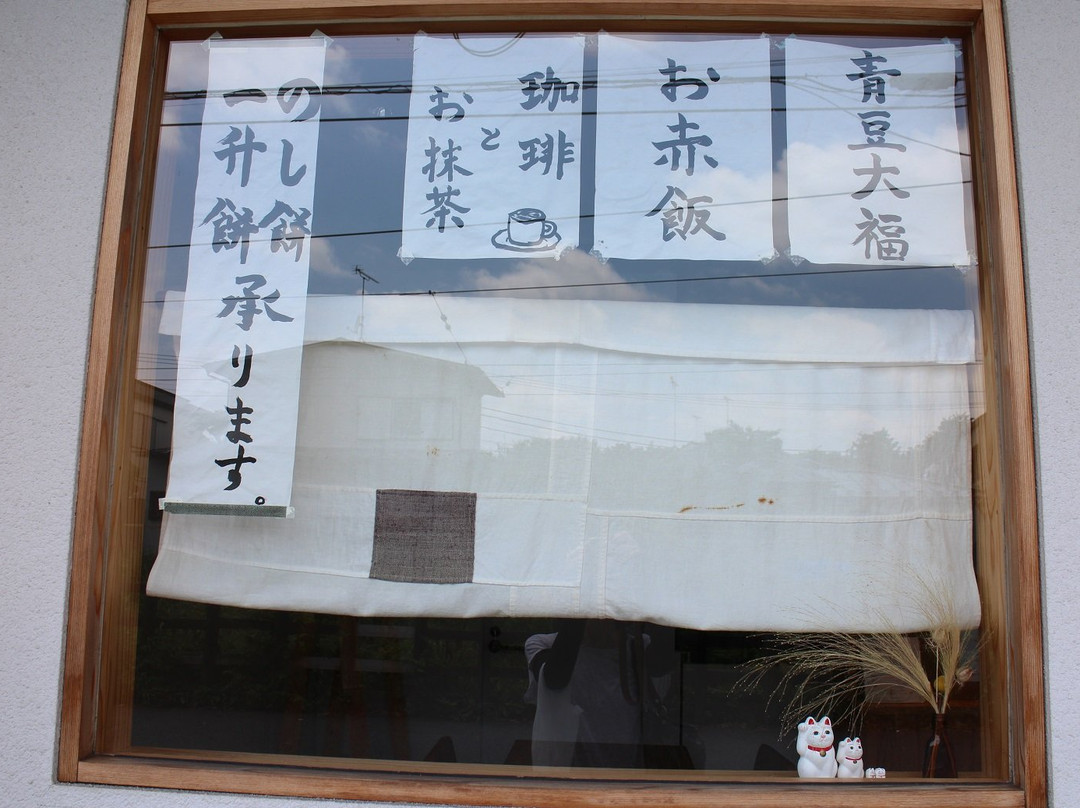 青豆大福
お赤飯
珈琲
と
お抹茶
のし餅
一升餅承ります。